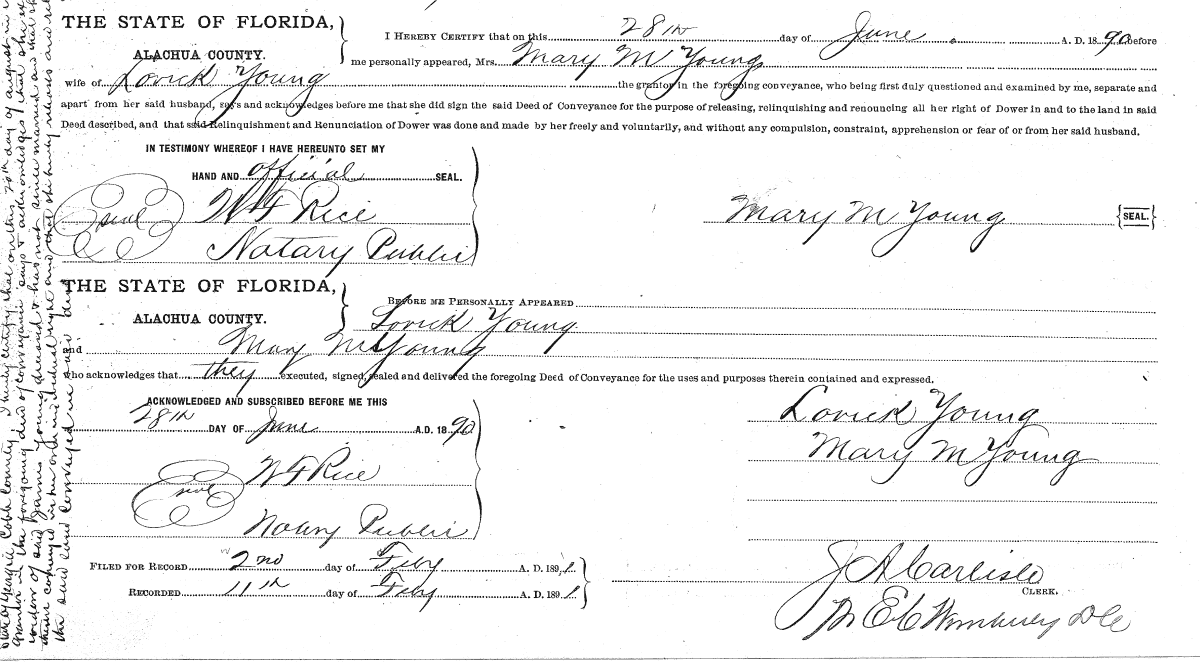 THE STATE OF FLORIDA,
ALACHUA COUNTY.
I HEREBY CERTIFY that on this 28th day of June A. D. 1890 before
me personally appeared, Mrs. Mary M Young
wife of Lovick Young the grantor in the foregoing conveyance, who being first duly questioned and examined by me, separate and
apart from her said husband, says and acknowledges before me that she did sign the said Deed of Conveyance for the purpose of releasing, relinquishing and renouncing all her right of Dower in and to the land in said
Deed described, and that said Relinquishment and Renunciation of Dower was done and made by her freely and voluntarily, and without any compulsion, constraint, apprehension or fear of or from her said husband.
IN TESTIMONY WHEREOF I HAVE HEREUNTO SET MY
HAND AND official SEAL.
Seal W F Rice
Notary Public
Mary M Young {SEAL.}
THE STATE OF FLORIDA,
ALACHUA COUNTY.
BEFORE ME PERSONALLY APPEARED
Lovick Young
and Mary M Young
who acknowledges that they executed, signed, sealed and delivered the foregoing Deed of Conveyance for the uses and purposes therein contained and expressed.
ACKNOWLEDGED AND SUBSCRIBED BEFORE ME THIS
28th DAY OF June A.D. 1890
Seal W F Rice
Notary Public
Lovick Young
Mary M Young
FILED FOR RECORD 2nd day of Feby A. D. 1891.
RECORDED 11th day of Feby A. D. 1891.
J A Carlisle
CLERK.
State of Georgia, Cobb County, I hereby certify that on this 20th day of August in
grantor in the foregoing deed of conveyance says &amp; acknowledges that she
widow of said James Young deceased &amp; has not since married and that
therein conveyed in her own individual right and that she hereby releases and
the said land conveyed